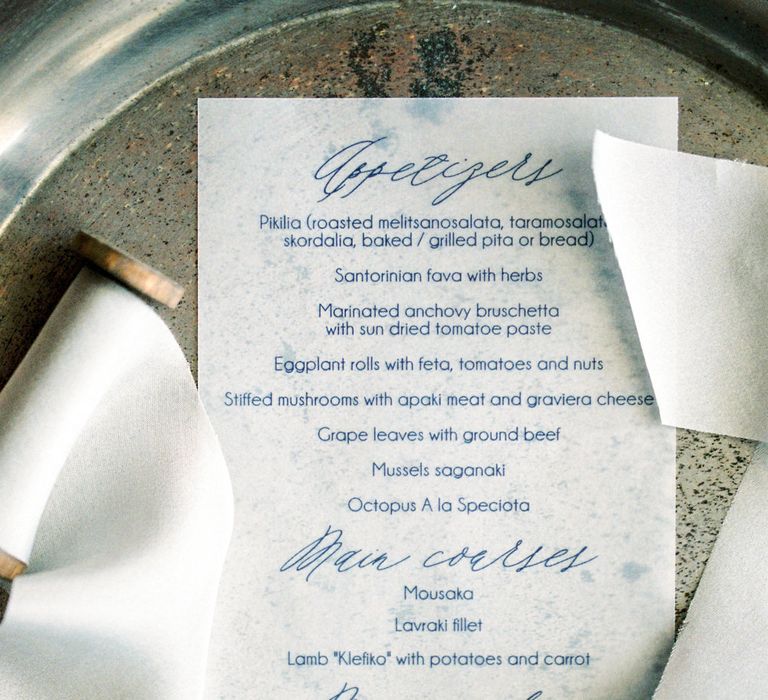 Appetizers
Pikilia (roasted melitsanosalata, taramosalat
skordalia, baked / grilled pita or bread)
Santorinian fava with herbs
Marinated anchovy bruschetta
with sun dried tomatoe paste
Eggplant rolls with feta, tomatoes and nuts
Stiffed mushrooms with apaki meat and graviera cheese
Grape leaves with ground beef
Mussels saganaki
Octopus A la Speciota
Main courses
Mousaka
Lavraki fillet
Lamb "Klefiko" with potatoes and carrot